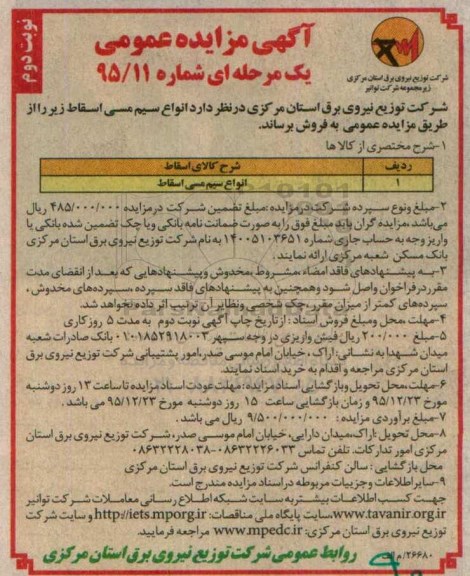 نوبت دوم
آگهی مزایده عمومی
یک مرحله ای شماره ۹۵/۱۱
شرکت توزیع نیروی برق استان مرکزی
زیرمجموعه شرکت توانیر
شرکت توزیع نیروی برق استان مرکزی درنظر دارد انواع سیم مسی اسقاط زیر را از
طریق مزایده عمومی به فروش برساند.
۱-شرح مختصری از کالا ها
ردیف شرح کالای اسقاط
۱ انواع سیم مسی اسقاط
۲-مبلغ ونوع سپرده شرکت درمزایده :مبلغ تضمین شرکت درمزایده ۴۸۵/۰۰۰/۰۰۰ ریال
می باشد .مزایده گران باید مبلغ فوق را به صورت ضمانت نامه بانکی ویا چک تضمین شده بانکی یا
واریز وجه به حساب جاری شماره ۱۴۰۰۵۱۰۳۶۵۱ به نام شرکت توزیع نیروی برق استان مرکزی
بانک مسکن شعبه مرکزی ارائه نمایند .
۳-به پیشنهادهای فاقد امضاء ،مشروط ،مخدوش وپیشنهادهایی که بعد از انقضای مدت
مقرر در فراخوان واصل شود وهمچنین به پیشنهادهای فاقد سپرده ،سپرده های مخدوش ،
سپرده های کمتر از میزان مقرر،چک شخصی ونظایر آن ترتیب اثر داده نخواهد شد.
۴-مهلت ،محل ومبلغ فروش اسناد : از تاریخ چاپ آگهی نوبت دوم به مدت ۵ روز کاری
۵-مبلغ ۲۰۰/۰۰۰ ریال فیش واریزی در وجه سپهر ۰۱۰۱۸۵۲۹۱۸۰۰۳ بانک صادرات شعبه
میدان شهدا به نشانی: اراک ، خیابان امام موسی صدر،امور پشتیبانی شرکت توزیع نیروی برق
استان مرکزی مراجعه و اقدام به خرید اسناد نمایند.
۶-مهلت،محل تحویل وبازگشایی اسناد مزایده:مهلت عودت اسناد مزایده تا ساعت ۱۳ روز دوشنبه
مورخ ۹۵/۱۲/۲۳ و زمان بازگشایی ساعت ۱۵ روز دوشنبه مورخ ۹۵/۱۲/۲۳ می باشد .
۷-مبلغ برآوردی مزایده : ۹/۵۰۰/۰۰۰/۰۰۰ ریال می باشد .
۸-محل تحویل :اراک،میدان دارایی، خیابان امام موسی صدر،شرکت توزیع نیروی برق استان
مرکزی امور تدارکات. تلفن تماس ۰۸۶۳۲۲۲۶۰۳۳-۰۸۶۳۲۲۲۸۰۳۸
محل بازگشایی : سالن کنفرانس شرکت توزیع نیروی برق استان مرکزی
۹-سایر اطلاعات وجزییات مربوطه دراسناد مزایده مندرج است.
جهت کسب اطلاعات بیشتر به سایت شبکه اطلاع رسانی معاملات شرکت توانیر
www.tavanir.org.ir،سایت پایگاه ملی مناقصات: http://iets.mporg.ir و سایت شرکت
توزیع نیروی برق استان مرکزی: www.mpedc.ir مراجعه فرمایید.
روابط عمومی شرکت توزیع نیروی برق استان مرکزی
۲۶۶۸۰/م الف